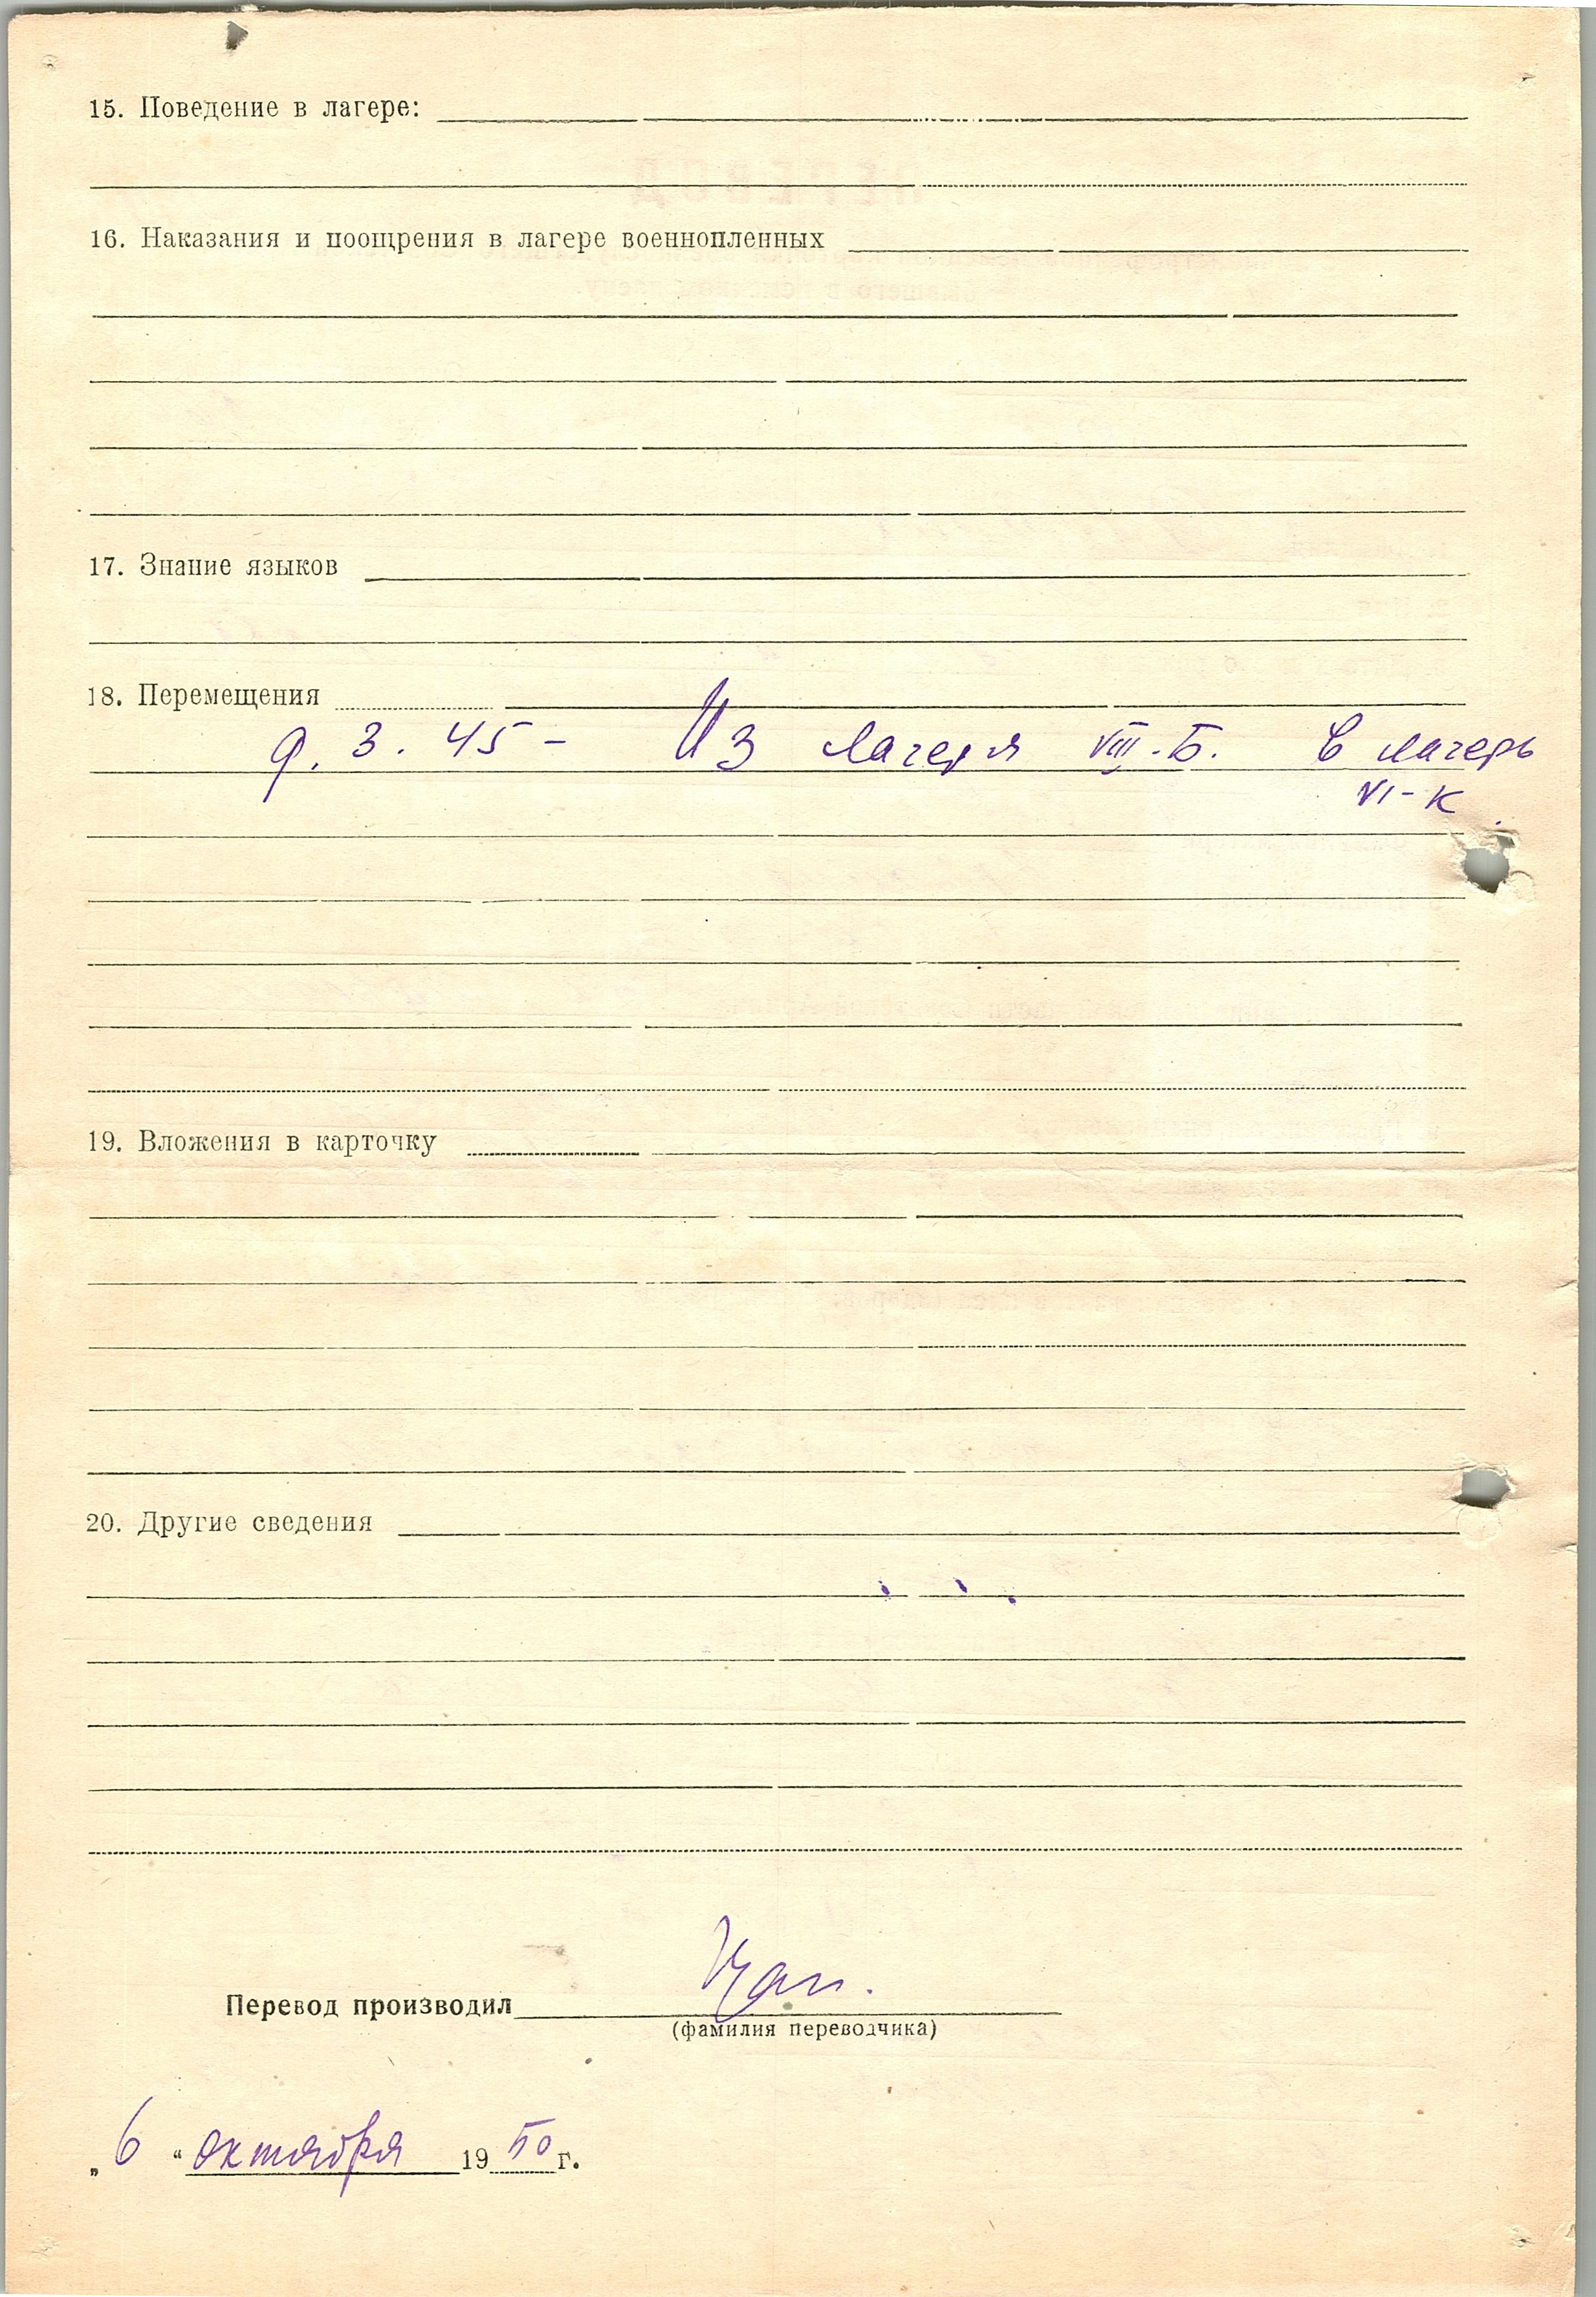 15. Поведение в лагере:
16. Наказания и поощрения в лагере военнопленных
17. Знание языков
18. Перемещения
9. 3. 45 – Из лагеря VIII-Б. в лагерь
VI-К
19. Вложения в карточку
20. Другие сведения
Перевод производил
(фамилия переводчика)
„6“ октября 1950 г.